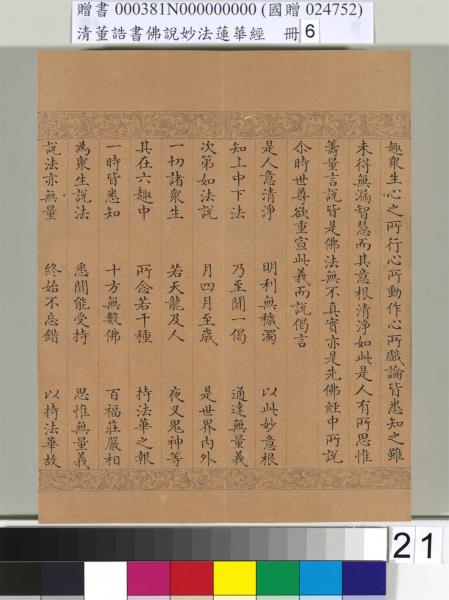 贈書 000381N000000000 (國贈 024752)
清董誥書佛說妙法蓮華經 冊 6
趣眾生心之所行心所動作心所戲論皆悉知之雖
未得無漏智慧而其意根清淨如此是人有所思惟
籌量言說皆是佛法無不真實亦是先佛經中所說
尒時世尊欲重宣此義而說偈言
是人意清淨 明利無穢濁 以此妙意根
知上中下法 乃至聞一偈 通達無量義
次第如法說 月四月至歲 是世界內外
一切諸眾生 若天龍及人 夜叉鬼神等
其在六趣中 所念若干種 持法華之報
一時皆悉知 十方無數佛 百福莊嚴相
為眾生說法 悉聞能受持 思惟無量義
說法亦無量 終始不忘錯 以持法華故
21